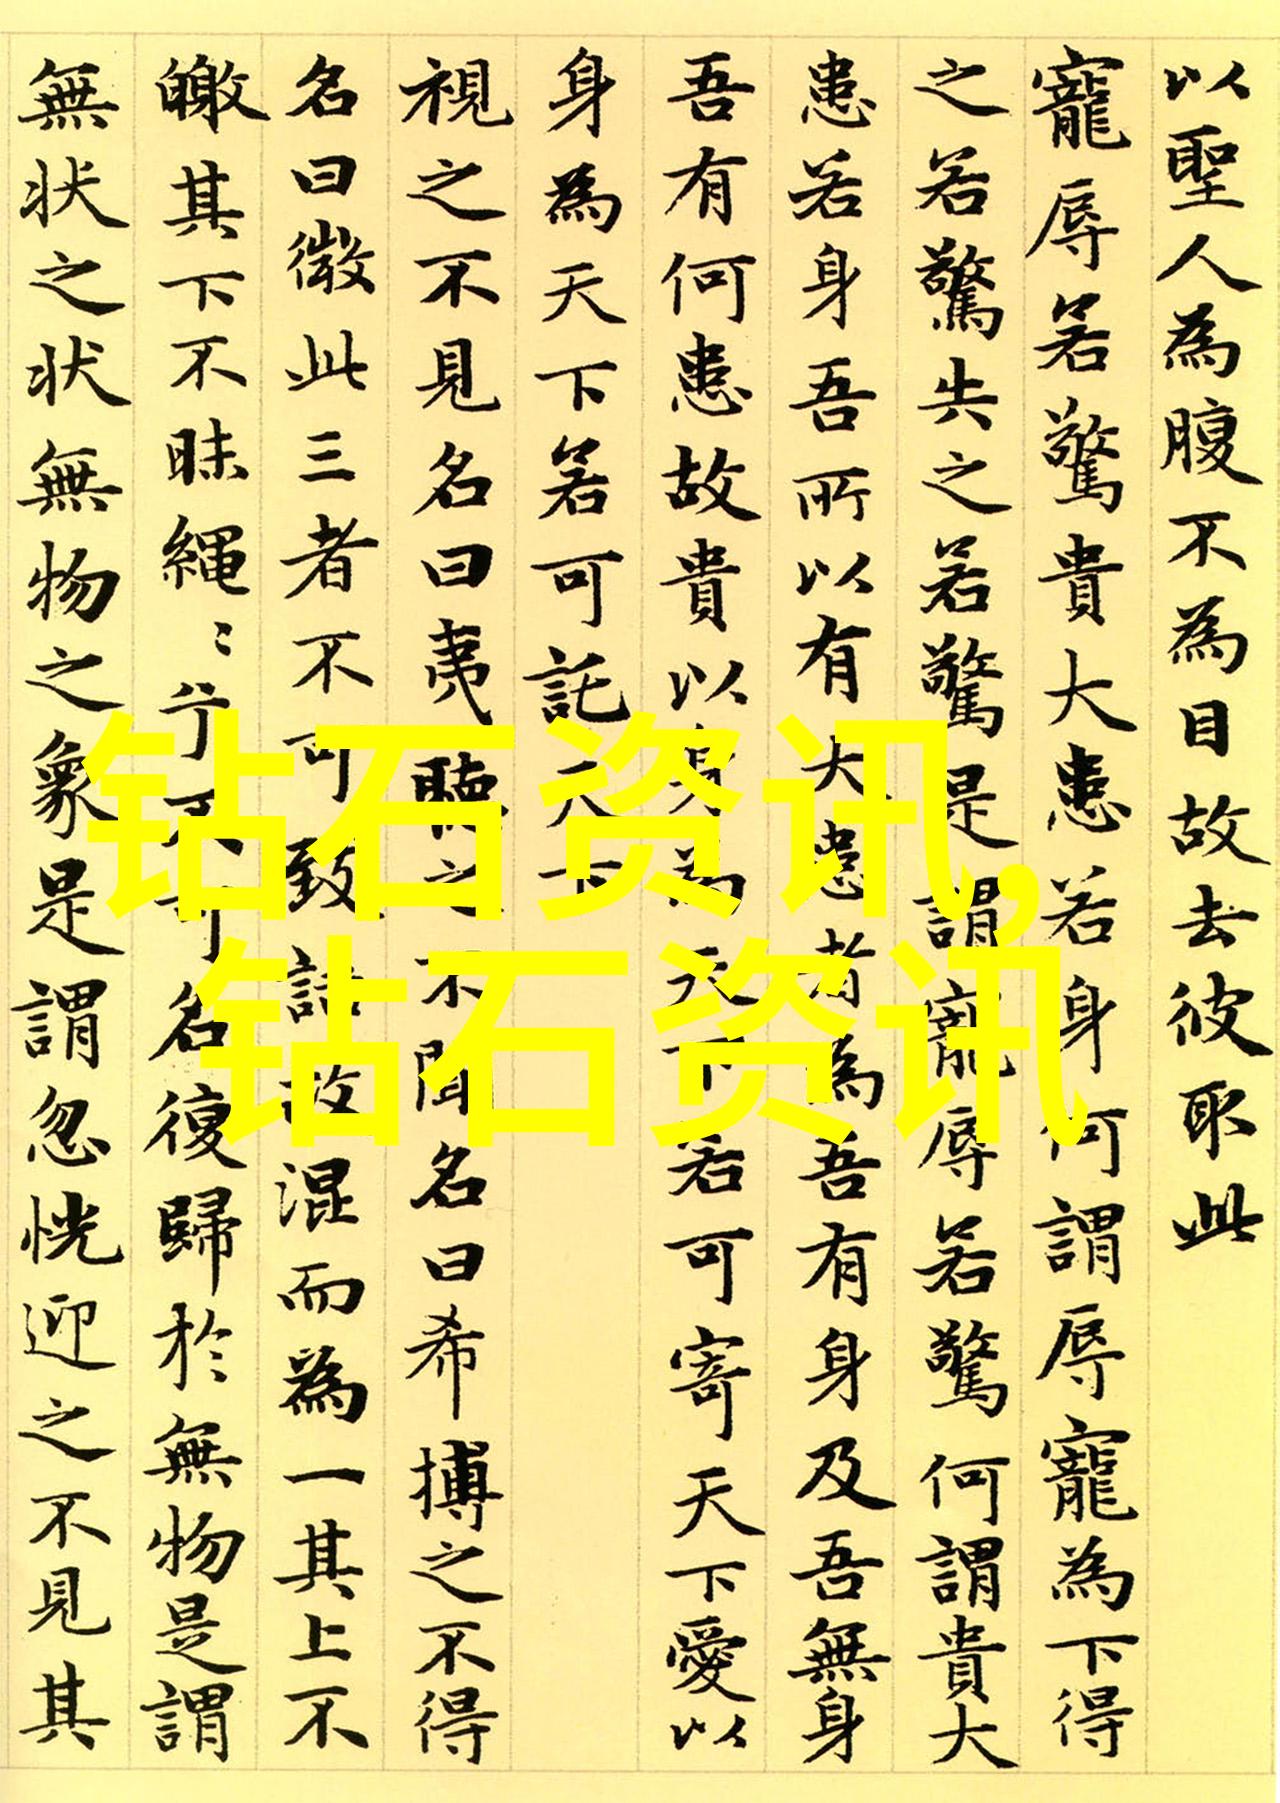 以聖人為腹不為目故去彼取此
寵辱若驚貴大患若身何謂辱寵為下得
之若驚失之若驚是謂寵辱若驚何謂貴大
患若身吾所以有大患者為吾有身及吾無身
吾有何患故貴以身為天下若可寄天下愛以
身為天下若可託天下
視之不見名曰夷聽之不聞名曰希搏之不得
名曰微此三者不可致詰故混而為一其上不
皦其下不昧繩〻兮不可名復歸於無物是謂
無状之状無物之象是謂忽恍迎之不見其
钻石资讯,
钻石资讯